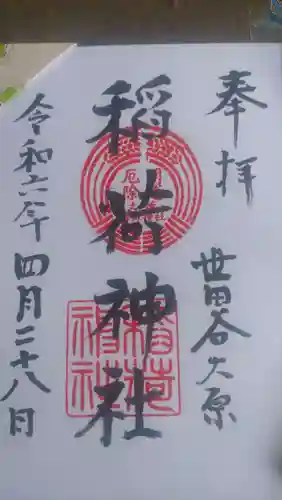 奉拝
世田谷大原
稲荷神社
令和六年四月二十八日
厄除
稲荷
神社